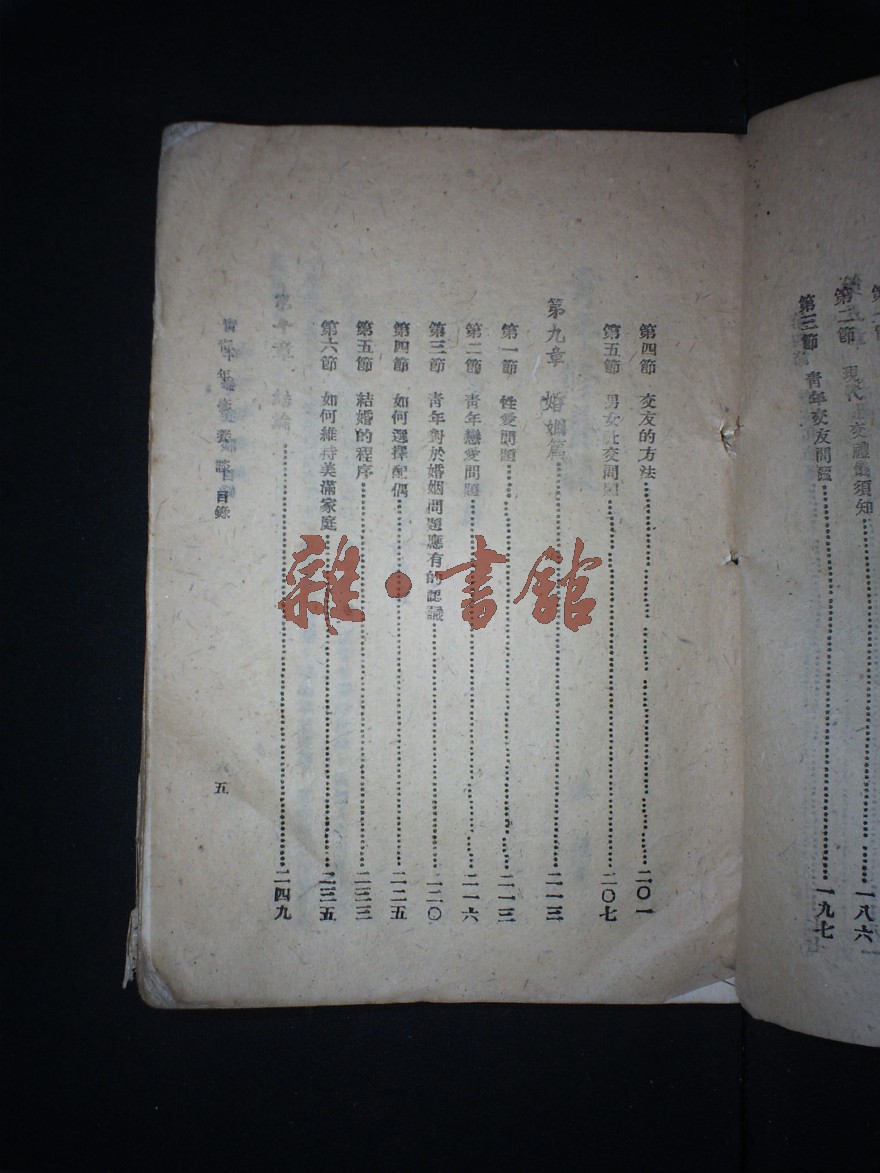 第二節 現代社交禮儀須知……一八六
第三節 青年交友問題……一九七
第四節 交友的方法……二〇一
第五節 男女社交問題……二〇七
第九章 婚姻篇……二一三
第一節 性愛問題……二一三
第二節 青年戀愛問題……二一六
第三節 青年對於婚姻問題應有的認識……二二〇
第四節 如何選擇配偶……二二五
第五節 結婚的程序……二三三
第六節 如何維持美滿家庭……二三五
第十章 結論……二四九
目錄
五
雜·書館